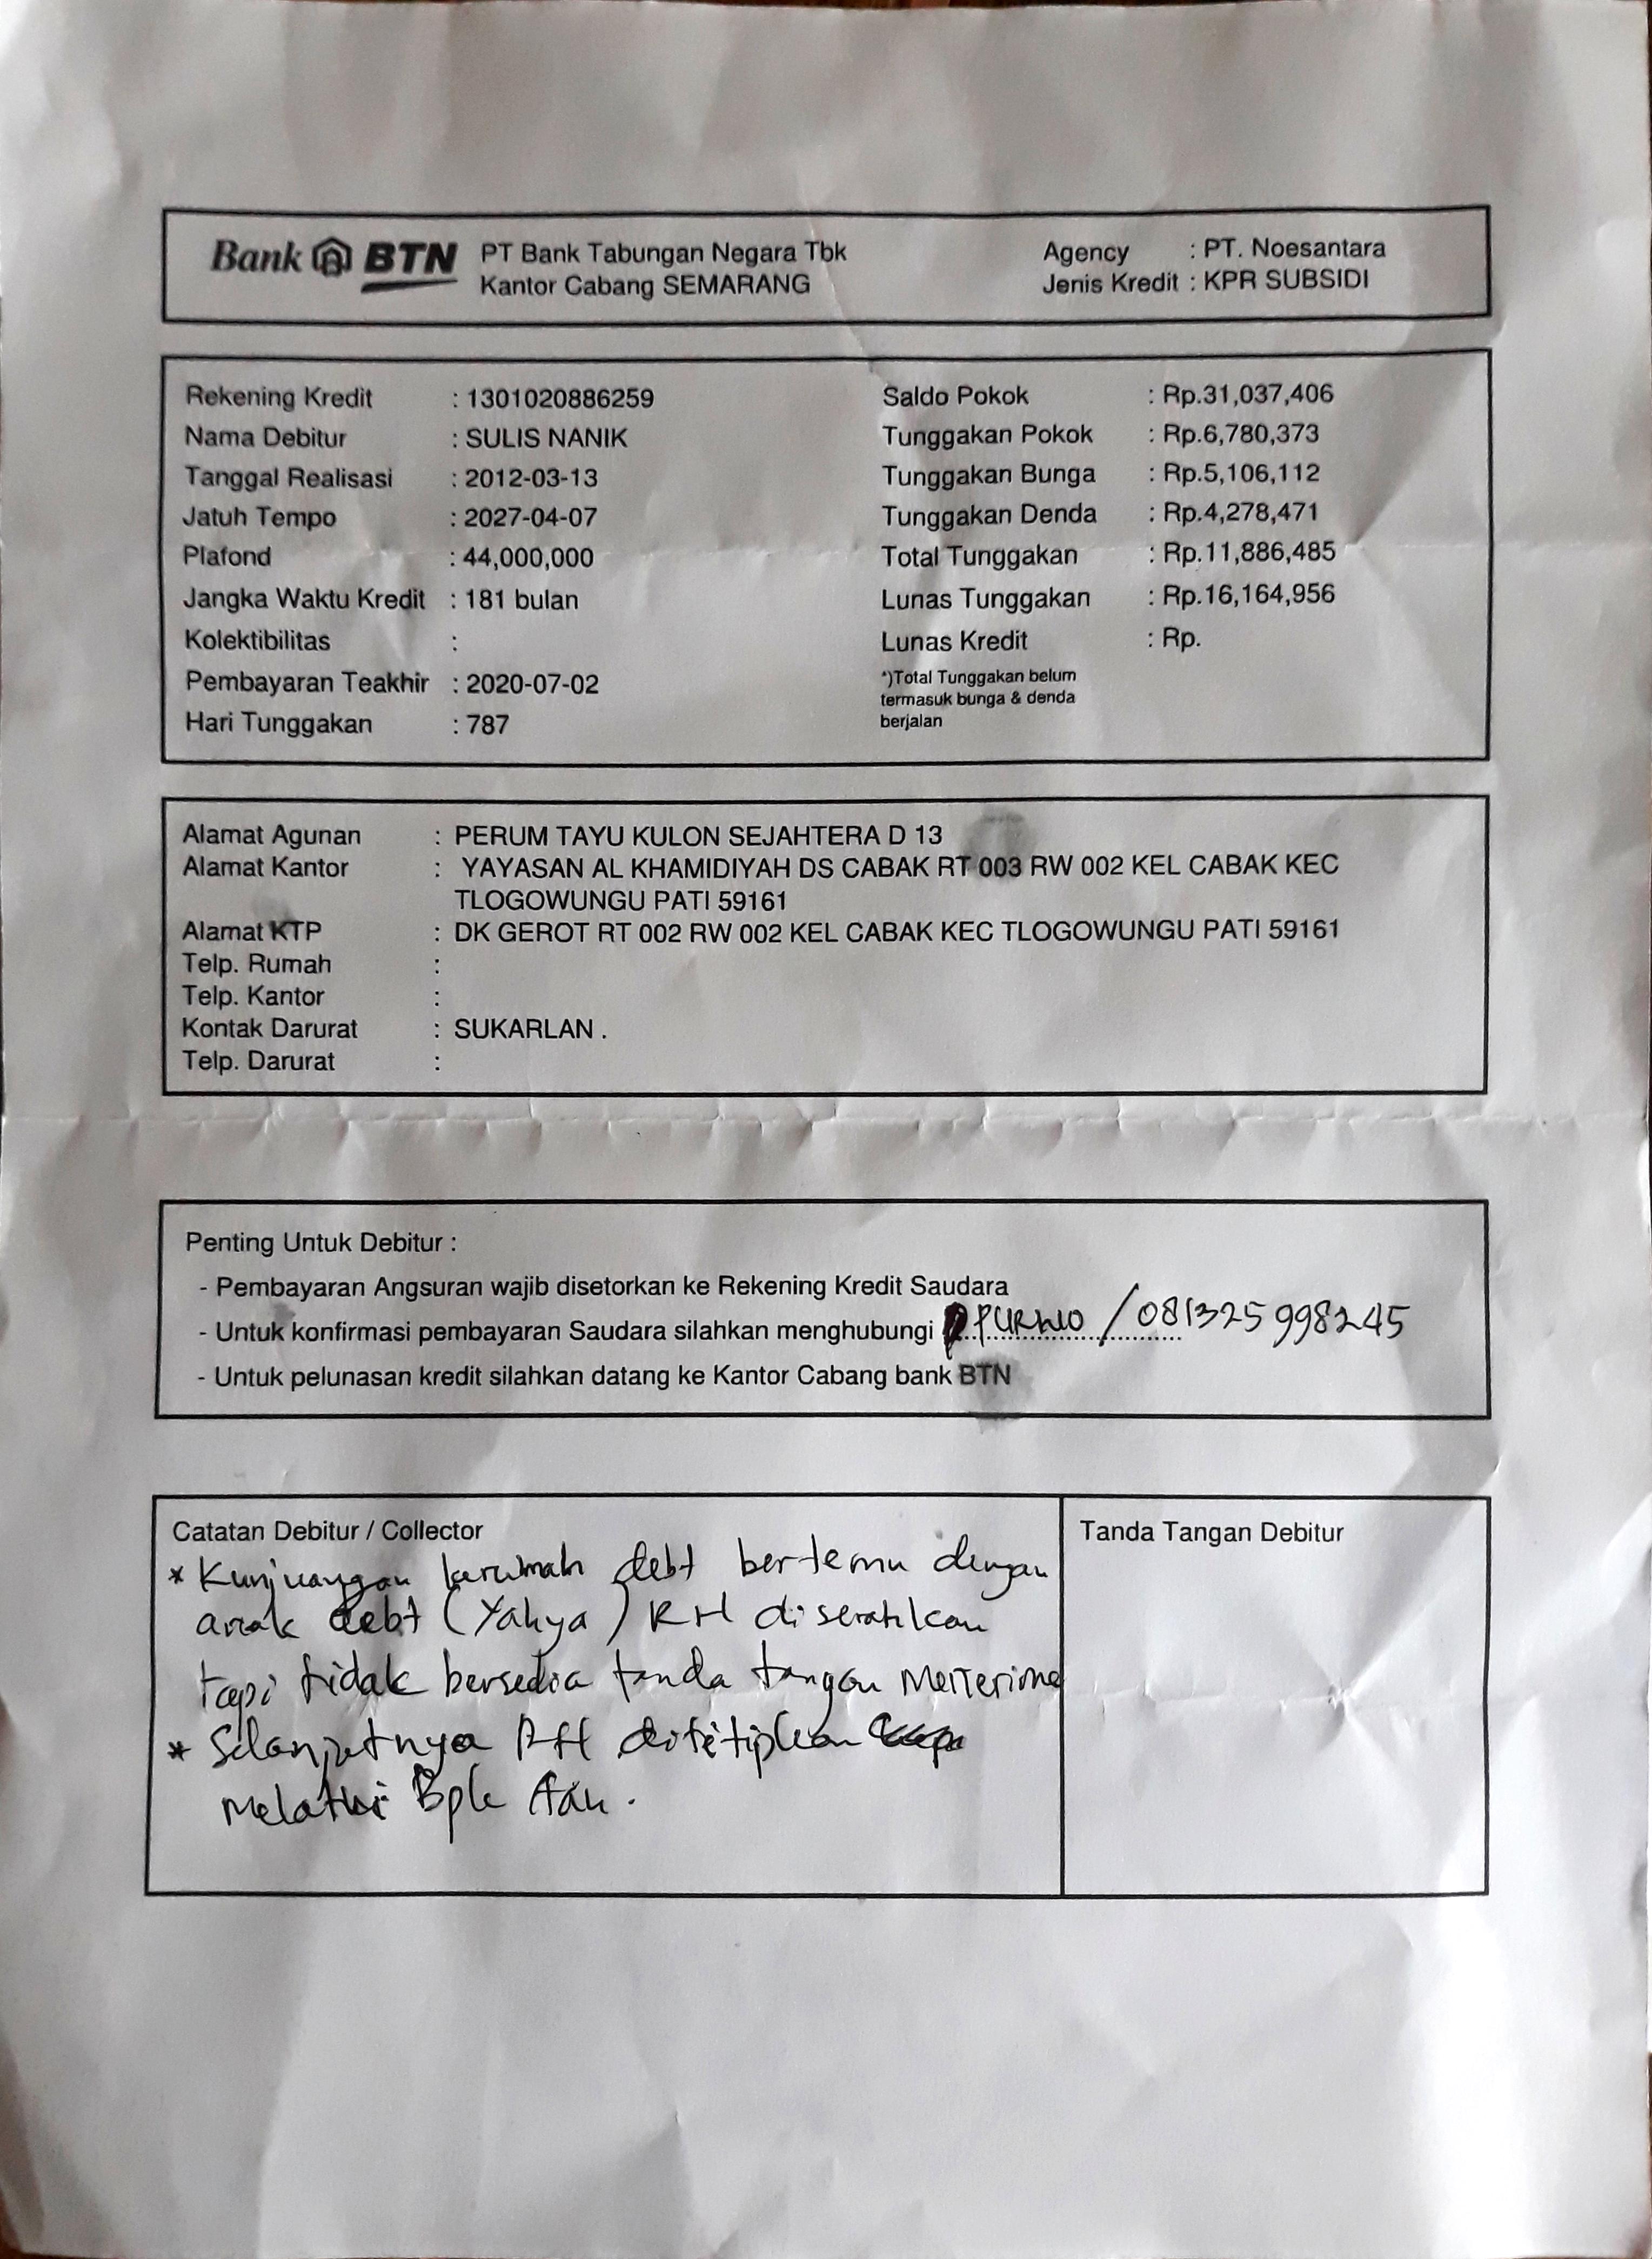 Bank BTN PT Bank Tabungan Negara Tbk
Kantor Cabang SEMARANG
Agency : PT. Noesantara
Jenis Kredit : KPR SUBSIDI
Rekening Kredit : 1301020886259
Nama Debitur : SULIS NANIK
Tanggal Realisasi : 2012-03-13
Jatuh Tempo : 2027-04-07
Plafond : 44,000,000
Jangka Waktu Kredit : 181 bulan
Kolektibilitas :
Pembayaran Teakhir : 2020-07-02
Hari Tunggakan : 787
Saldo Pokok : Rp.31,037,406
Tunggakan Pokok : Rp.6,780,373
Tunggakan Bunga : Rp.5,106,112
Tunggakan Denda : Rp.4,278,471
Total Tunggakan : Rp.11,886,485
Lunas Tunggakan : Rp.16,164,956
Lunas Kredit : Rp.
*)Total Tunggakan belum
termasuk bunga & denda
berjalan
Alamat Agunan : PERUM TAYU KULON SEJAHTERA D 13
Alamat Kantor : YAYASAN AL KHAMIDIYAH DS CABAK RT 003 RW 002 KEL CABAK KEC
TLOGOWUNGU PATI 59161
Alamat KTP : DK GEROT RT 002 RW 002 KEL CABAK KEC TLOGOWUNGU PATI 59161
Telp. Rumah :
Telp. Kantor :
Kontak Darurat : SUKARLAN .
Telp. Darurat :
Penting Untuk Debitur :
- Pembayaran Angsuran wajib disetorkan ke Rekening Kredit Saudara
- Untuk konfirmasi pembayaran Saudara silahkan menghubungi / 081325998245
- Untuk pelunasan kredit silahkan datang ke Kantor Cabang bank BTN
Catatan Debitur / Collector
* Kunjuangan kerumah debt bertemu dengan
anak debt (Yahya) RH diserahkan
tapi tidak bersedia tanda tangan Menerima
* Selanjutnya RH dititipkan
Melalui Bpk
Tanda Tangan Debitur